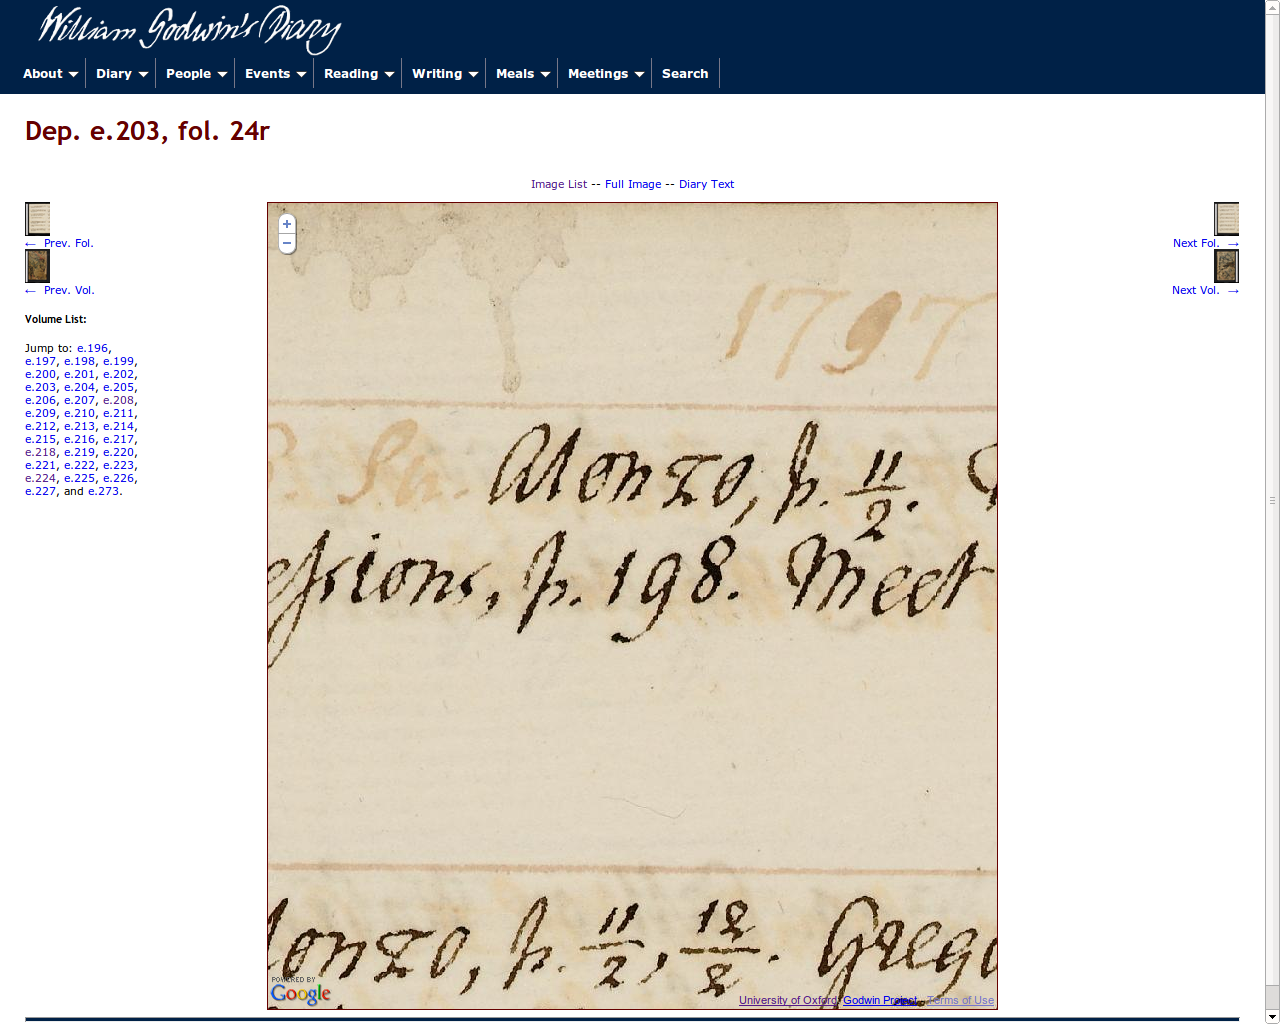 William Godwin's Diary
About Diary People Events Reading Writing Meals Meetings Search
Dep. e.203, fol. 24r
Image List -- Full Image -- Diary Text
← Prev. Fol.
← Prev. Vol.
Volume List:
Jump to: e.196,
e.197, e.198, e.199,
e.200, e.201, e.202,
e.203, e.204, e.205,
e.206, e.207, e.208,
e.209, e.210, e.211,
e.212, e.213, e.214,
e.215, e.216, e.217,
e.218, e.219, e.220,
e.221, e.222, e.223,
e.224, e.225, e.226,
e.227, and e.273.
+
−
1797
Su. Alonzo, p. 11/2.
essions, p. 198. Meet
lonzo, p. 11/2, 12/2. Grego
POWERED BY
Google
University of Oxford, Godwin Project - Terms of Use
Next Fol. →
Next Vol. →